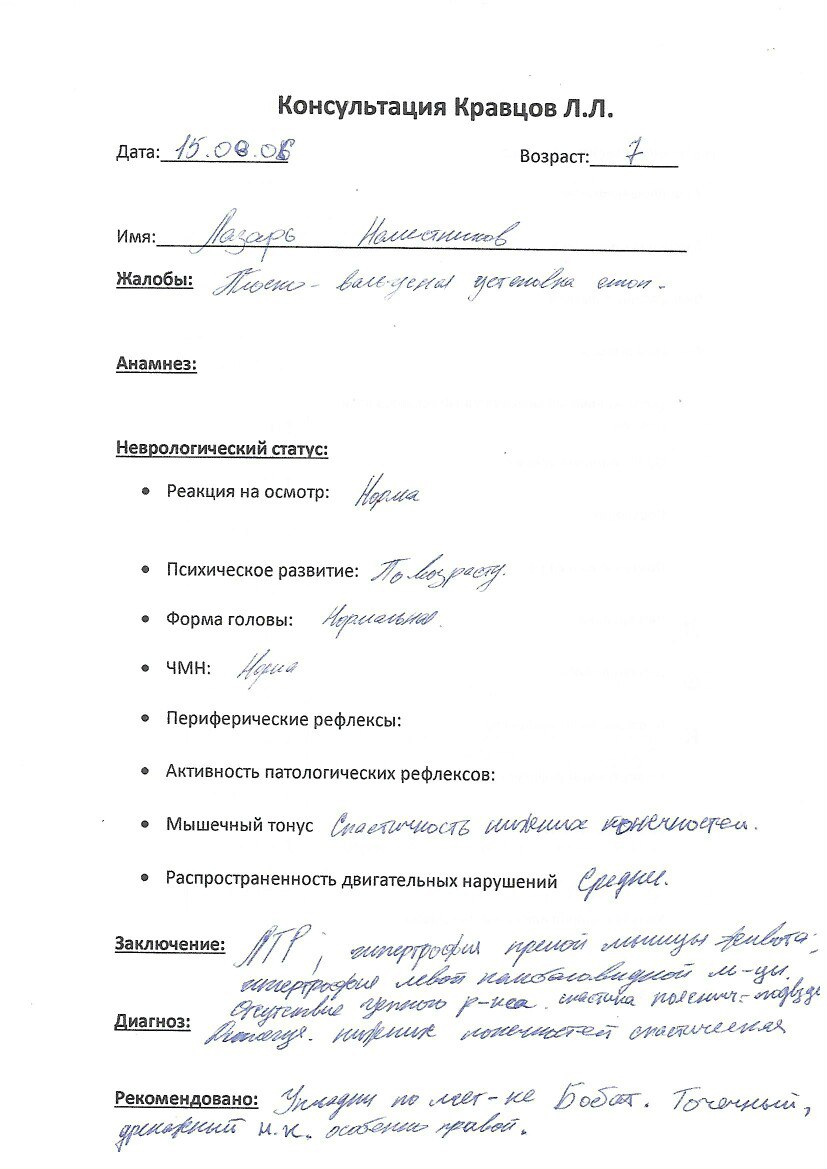 Консультация Кравцов Л.Л.
Дата: 15.08.06 Возраст: 7
Имя: Лазарь Наместников
Жалобы: Плоско-вальгусная установка стоп.
Анамнез:
Неврологический статус:
• Реакция на осмотр: Норма
• Психическое развитие: По возрасту.
• Форма головы: Нормальная.
• ЧМН: Норма
• Периферические рефлексы:
• Активность патологических рефлексов:
• Мышечный тонус Спастичность нижних конечностей.
• Распространенность двигательных нарушений Средние.
Заключение: ЛТР; гипертрофия прямой мышцы живота;
гипертрофия левой камбаловидной м-цы.
Отсутствие цепного р-кса. спастика пояснич-подвзд
Диагноз: нижних конечностей спастическая
Рекомендовано: Укладки по мет-ке Бобат. Точечный,
дренажный н.к. особенно правой.